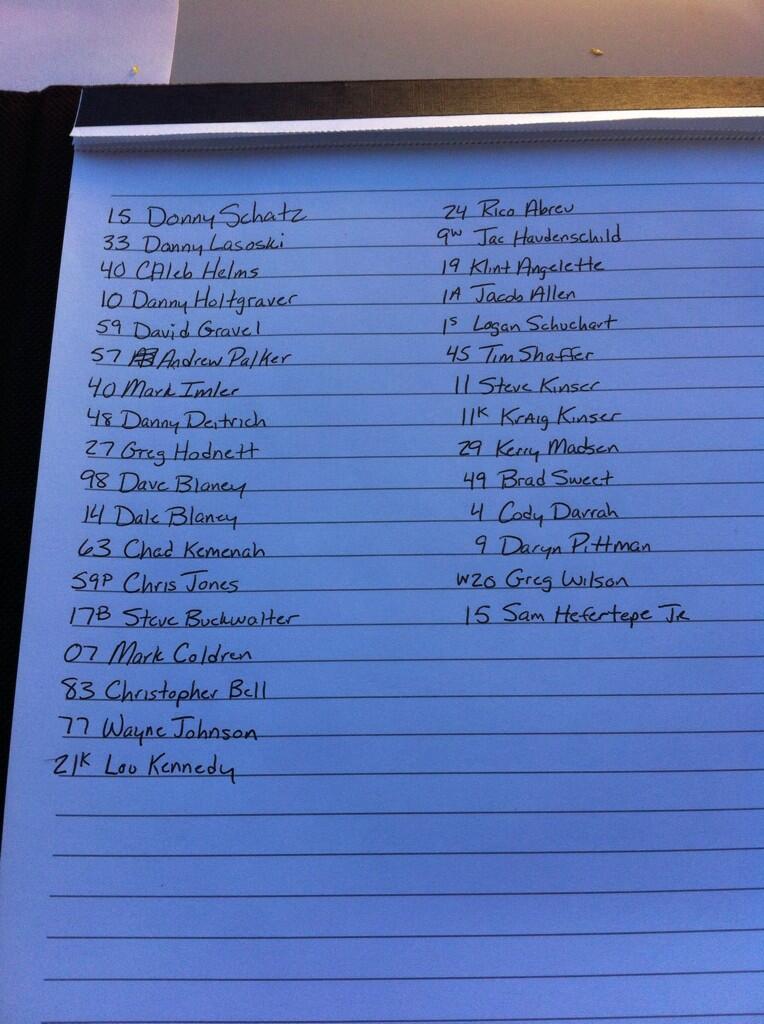 15 Donny Schatz
33 Danny Lasoski
40 CAleb Helms
10 Danny Holtgraver
59 David Gravel
57 Andrew Palker
40 Mark Imler
48 Danny Deitrich
27 Greg Hodnett
98 Dave Blaney
14 Dale Blaney
63 Chad Kemenah
59P Chris Jones
17B Steve Buckwalter
07 Mark Coldren
83 Christopher Bell
77 Wayne Johnson
21K Lou Kennedy
24 Rico Abreu
9W Jac Haudenschild
19 Klint Angelette
1A Jacob Allen
1S Logan Schuchart
45 Tim Shaffer
11 Steve Kinser
11K Kraig Kinser
29 Kerry Madsen
49 Brad Sweet
4 Cody Darrah
9 Daryn Pittman
W20 Greg Wilson
15 Sam Hefertepe Jr